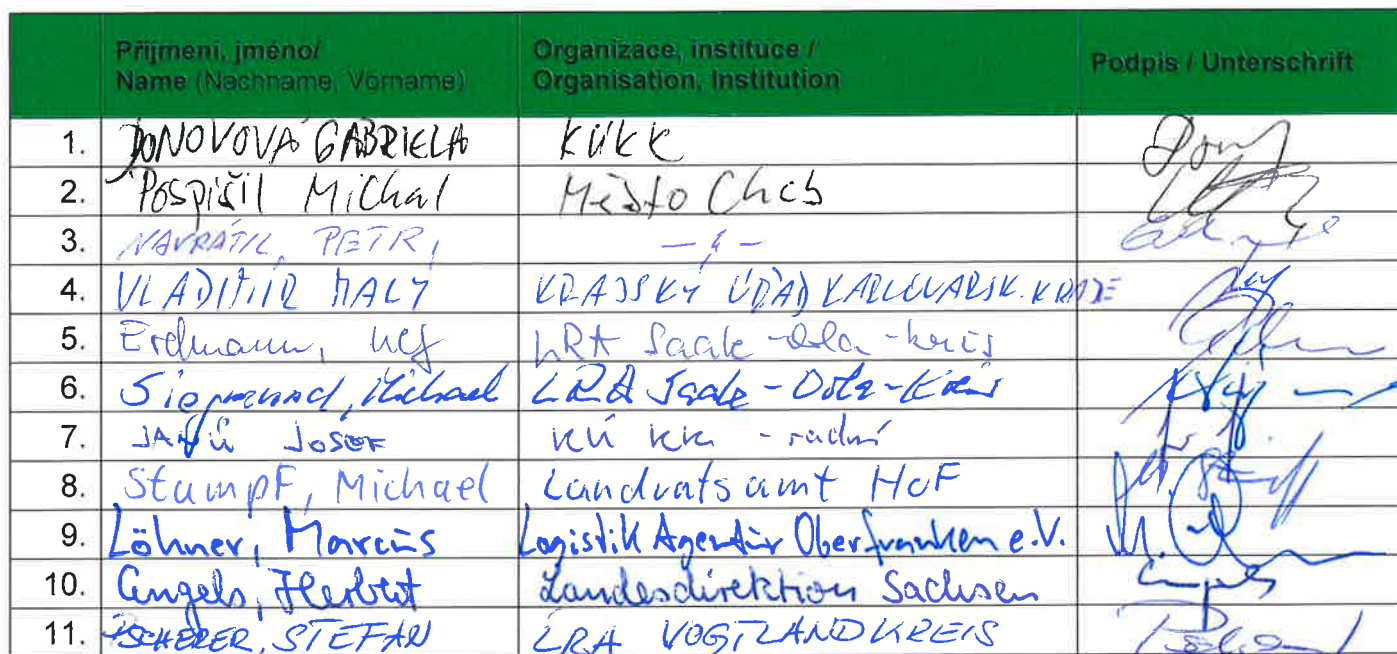 Příjmení, jméno/ Organizace, instituce / Podpis / Unterschrift
Name (Nachname, Vorname) Organisation, Institution
1. DONOVOVÁ GABRIELA KÚKK
2. Pospíšil Michal Město Cheb
3. NAVRÁTIL, PETR,
4. VLADIMÍR MALÝ KRAJSKÝ ÚŘAD KARLOVARSK. KRAJE
5. Erdmann, LRA Saale-Orla-Kreis
6. Siegmund, Michael LRA Saale-Orla-Kreis
7. JANŮ JOSEF KÚ KK - radní
8. Stumpf, Michael Landratsamt HOF
9. Löhner, Marcus Logistik Agentur Oberfranken e.V.
10. Engels, Herbert Landesdirektion Sachsen
11. STEFAN LRA VOGTLANDKREIS